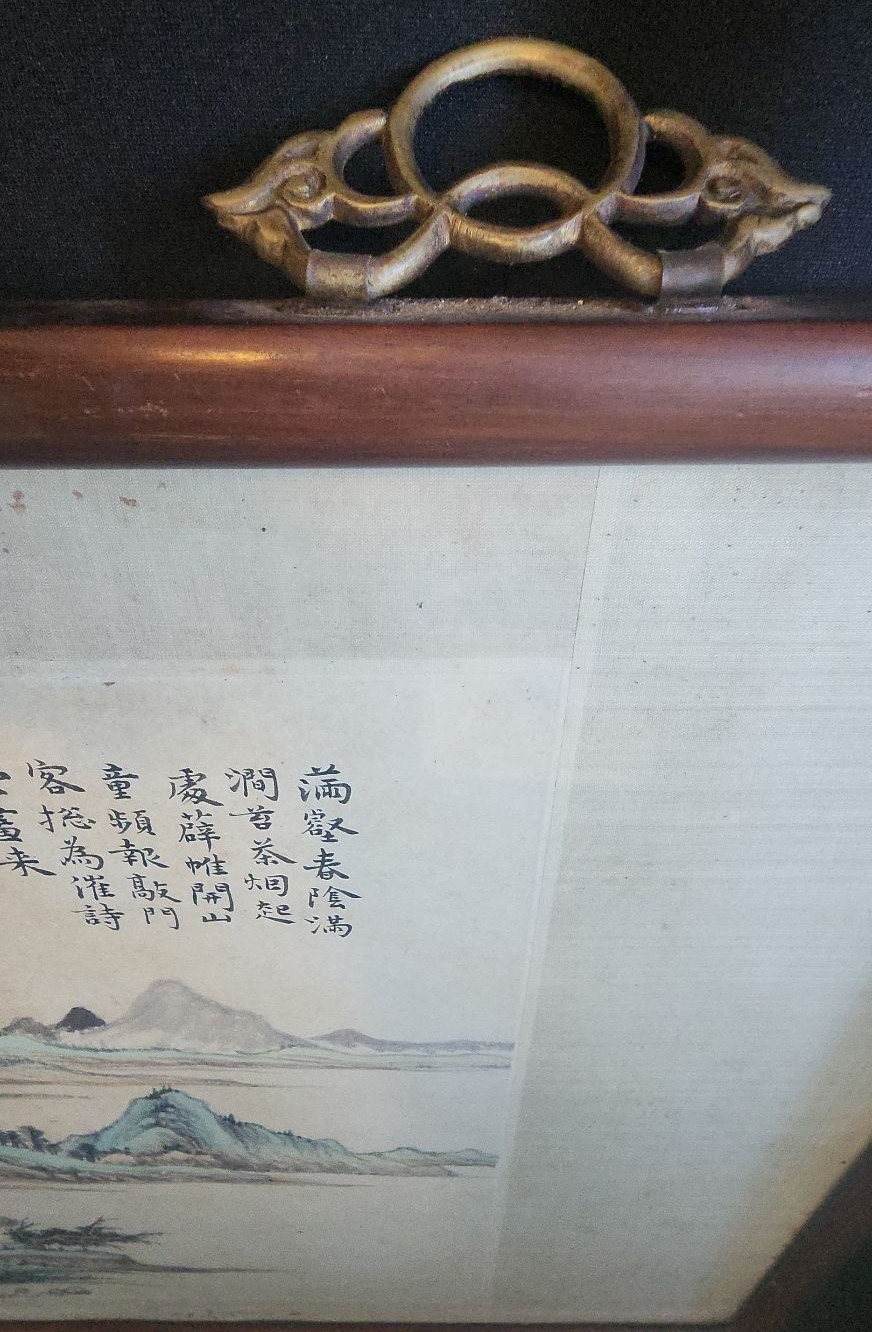 滿壑春陰滿
澗苔茶烟起
處薜帷開山
童頻報敲門
客揔為催詩
畫来